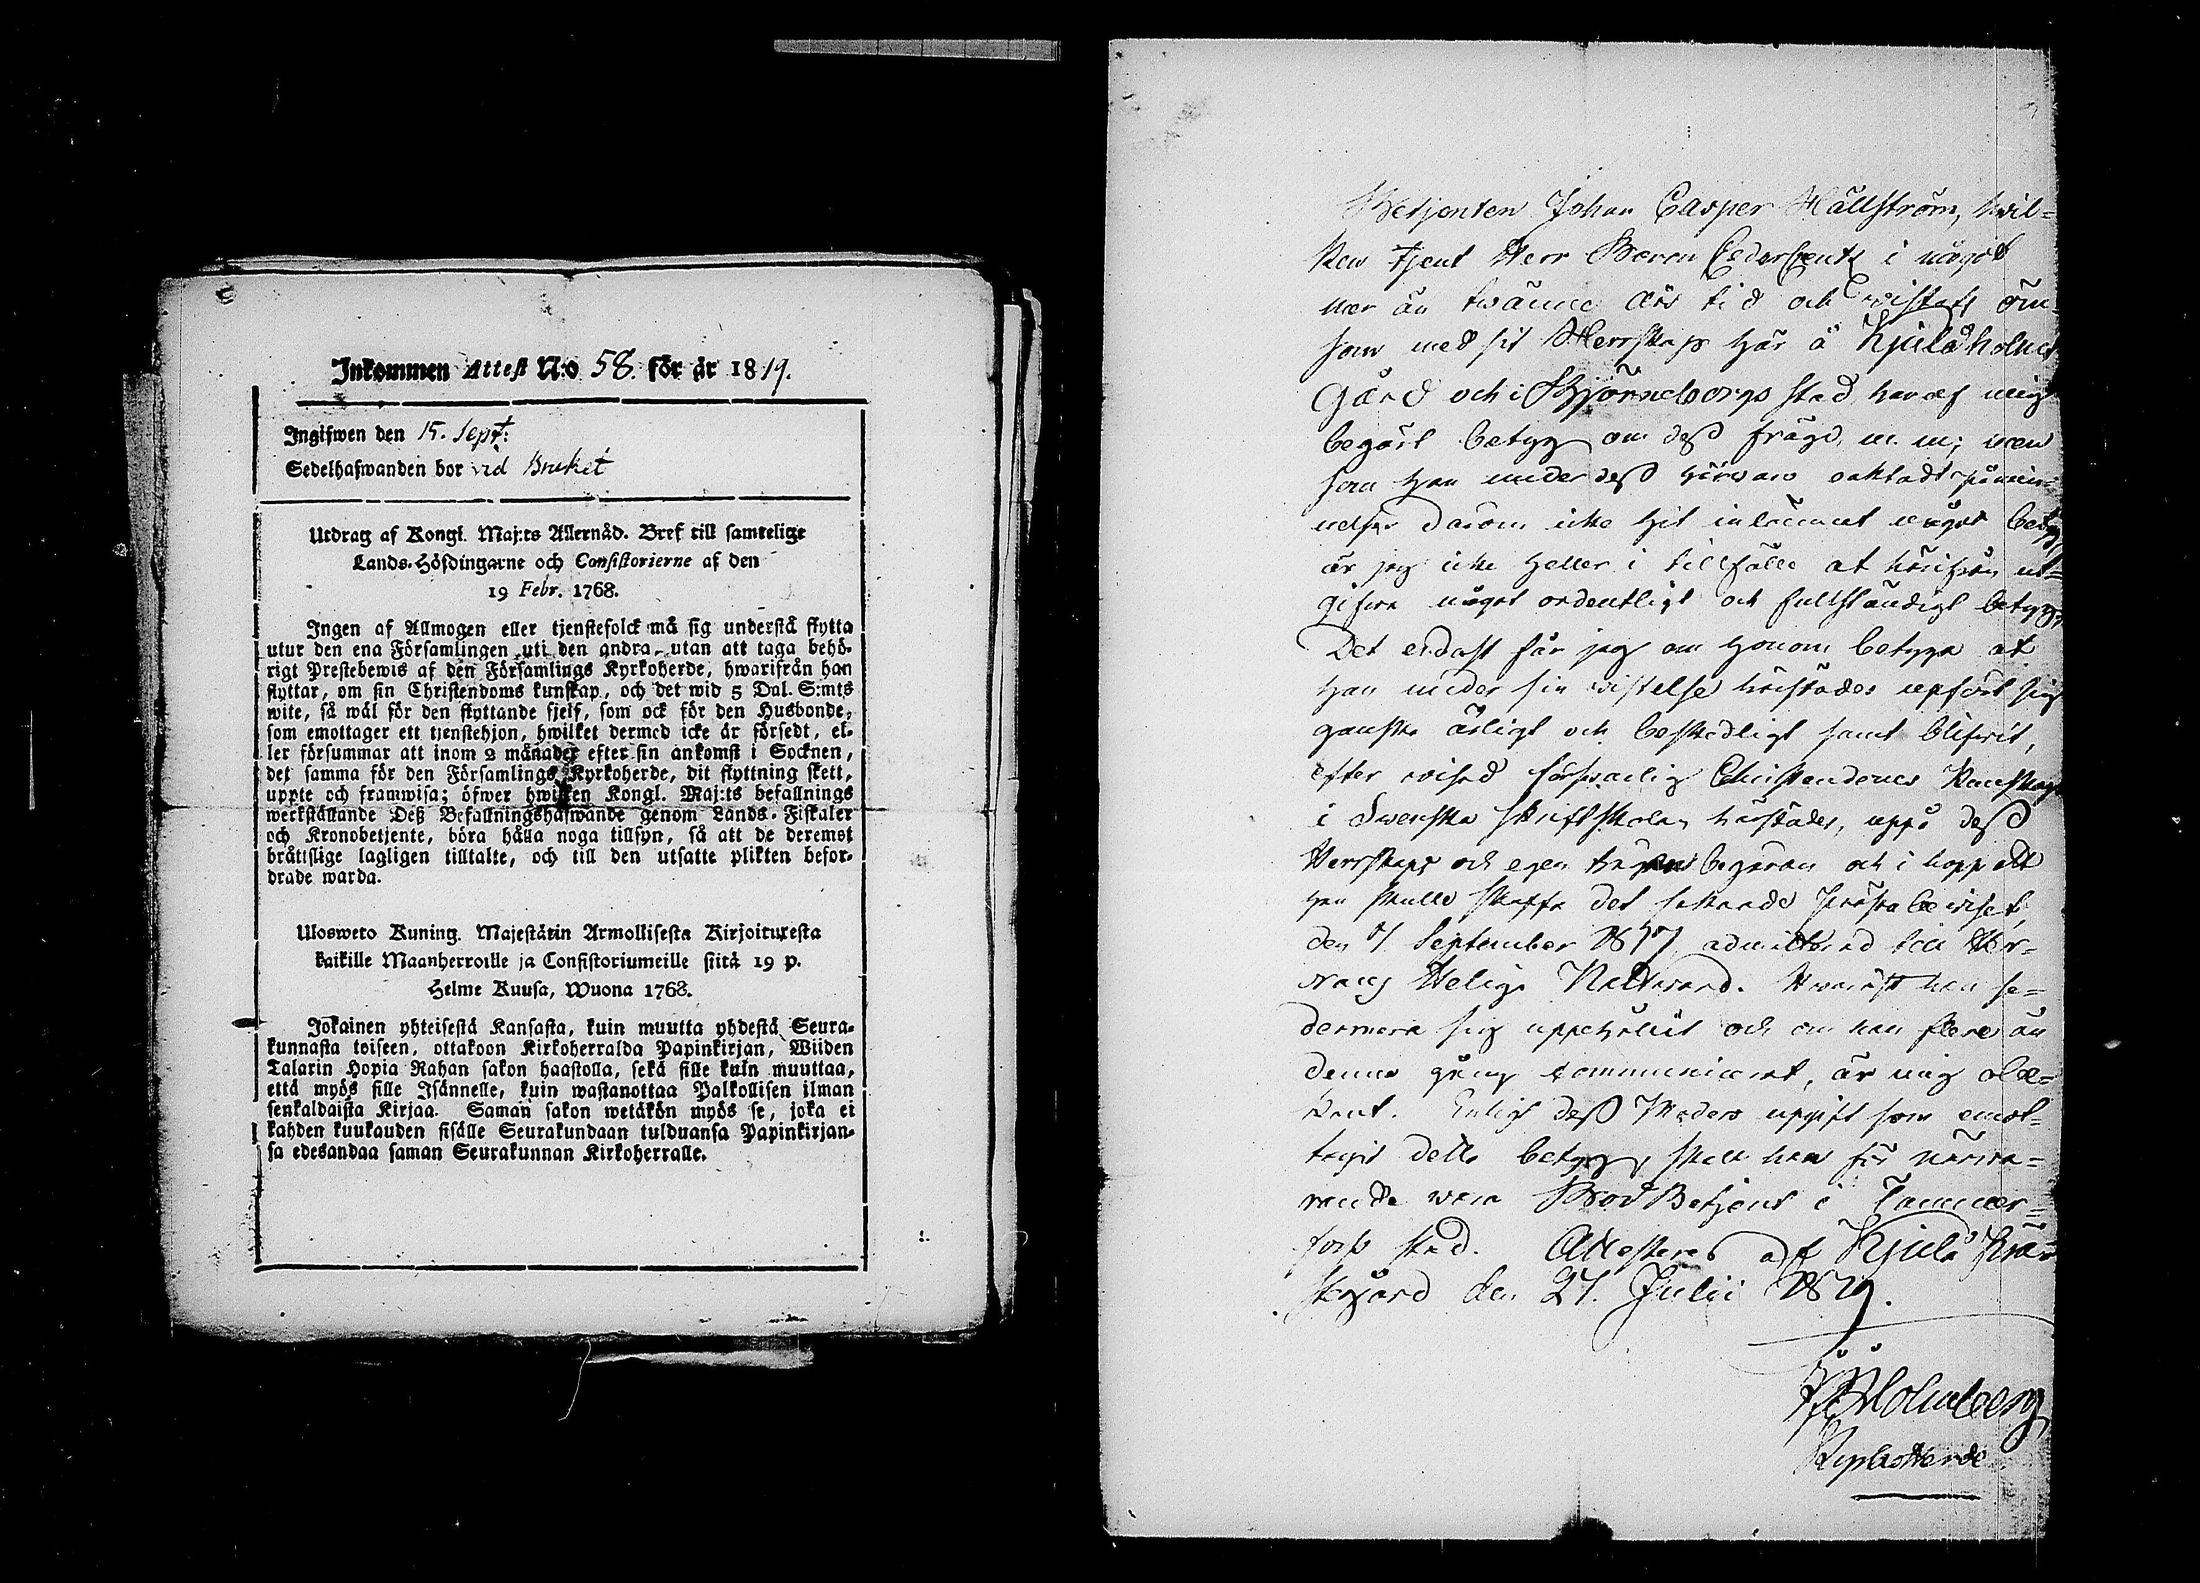 Inkommen Attest N:o 58. för år 1819.
Ingifwen den 15. Sept:
Sedelhafwanden bor vid Bruket
Utdrag af Kongl. Maj:ts Allernåd. Bref till samtelige
Lands-Höfdingarne och Consistorierne af den
19 Febr. 1768.
Ingen af Allmogen eller tjenstefolck må sig understå flytta
utur den ena Församlingen uti den andra, utan att taga behö-
rigt Prestebewis af den Församlings Kyrkoherde, hwarifrån han
flyttar, om sin Christendoms kunskap, och det wid 5 Dal. S:mts
wite, så wäl för den flyttande sjelf, som ock för den Husbonde,
som emottager ett tjenstehjon, hwilket dermed icke är försedt, el-
ler försummar att inom 2 månader efter sin ankomst i Socknen,
det samma för den Församlings Kyrkoherde, dit flyttning skett,
uppte och framwisa; öfwer hwilken Kongl. Maj:ts befallnings
werkställande Deß Befallningshafwande genom Lands-Fiskaler
och Kronobetjente, böra hålla noga tillsyn, så att de deremot
bråttslige lagligen tilltalte, och till den utsatte plikten befor-
drade warda.
Ulosweto Kuning. Majestätin Armollisesta Kirjoituxesta
kaikille Maanherroille ja Consistoriumeille siitä 19 p.
Helme Kuusa, Wuona 1768.
Jokainen yhteisestä Kansasta, kuin muutta yhdestä Seura-
kunnasta toiseen, ottakoon Kirkoherralda Papinkirjan, Wiiden
Talarin Hopia Rahan sakon haastolla, sekä sille kuin muuttaa,
että myös sille Isännelle, kuin wastanottaa Palkollisen ilman
senkaldaista Kirjaa. Saman sakon wetäkön myös se, joka ei
kahden kuukauden sisälle Seurakundaan tulduansa Papinkirjan-
sa edesandaa saman Seurakunnan Kirkoherralle.
Betjenten Johan Casper Hällström, hvil-
ken tjent Herr Baron Cedercreutz i något
mer än twänne års tid och wistats öm-
som med sit Herrskap här å Kjulåholms
Gård och i Björneborgs stad har af mig
begärt betyg om deß frägd m. m; men
som han under deß härwaro oaktadt påmin-
nelser darom icke hit inlämnat något betyg,
är jag icke heller i tillfälle at härifrån ut-
gifwa något ordentligt och fullständigt betyg.
Det endast får jag om honom betyga at
han under sin wistelse härstädes upfört sig
ganska ärligt och beskedligt samt blifwit,
efter wisad förswarlig Christendoms Kunskap
i Swenska skriftskolan härstädes, uppå deß
Herrskaps och egen begäran och i hopp att
han skulle skaffa det saknade Prästebewiset,
den 7 September 1817 admitterad til Her-
rans Helige Nattward. Hwarest han se-
dermera sig uppehållit och om han flere än
denna gång communicerat, är mig obe-
kant. Enligt deß Moders upgift som emot-
tagit detta betyg, skall han för närwa-
rande wara BrodBetjent i Tammer-
fors stad. Attesteras af Kjulå Präst-
gård den 27. Julii 1819.
Holmberg
Kyrkoherde